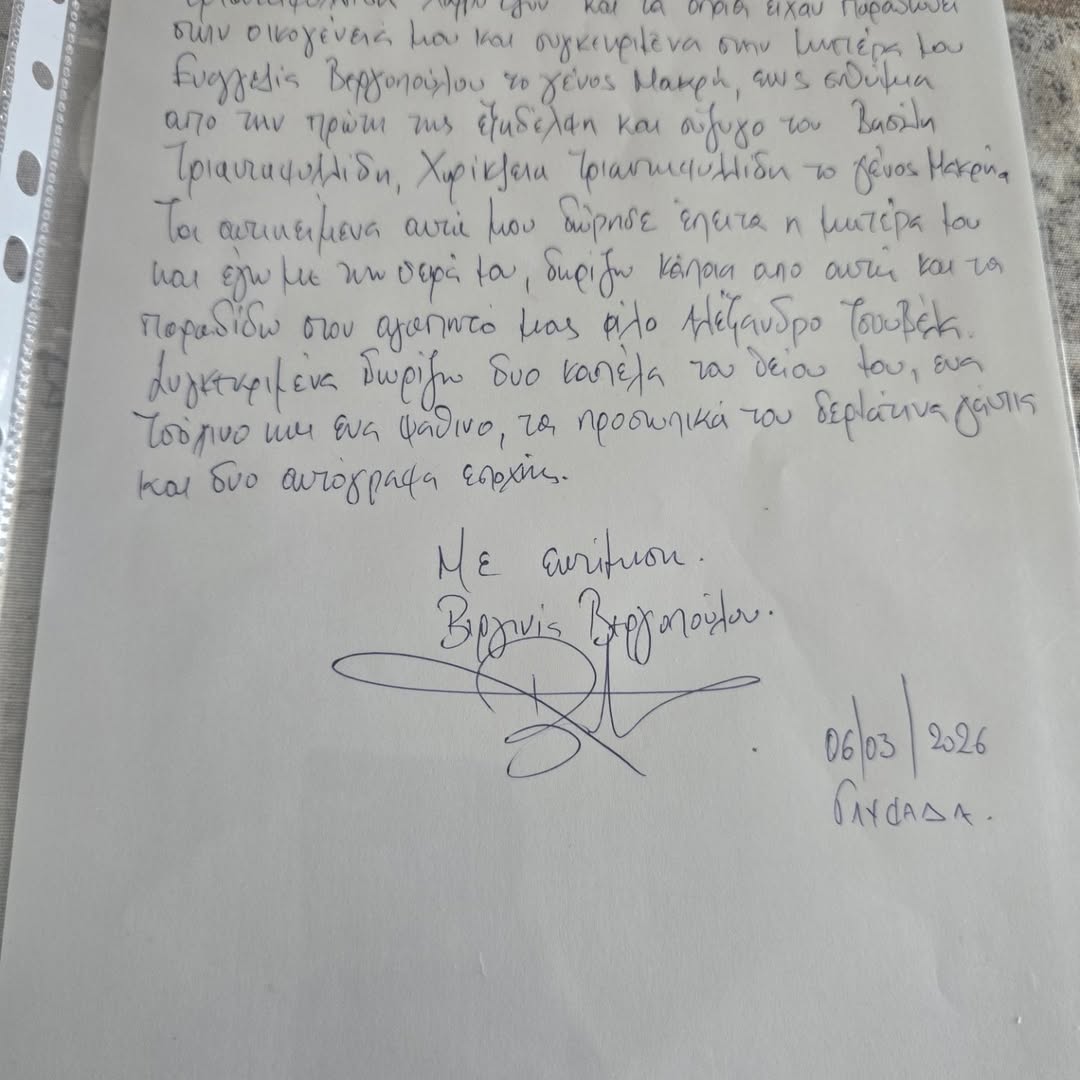 και τα οποία είχαν παραδωθεί
στην οικογένειά μου και συγκεκριμένα στην μητέρα μου
Ευαγγελία Βεργοπούλου το γένος Μακρή, ως ενθύμια
απο την πρώτη της εξαδέλφη και σύζυγο του Βασίλη
Τριανταφυλλίδη, Χαρίκλεια Τριανταφυλλίδη το γένος Μακρή.
Τα αντικείμενα αυτά μου δώρησε έπειτα η μητέρα μου
και εγώ με την σειρά μου, δωρίζω κάποια απο αυτά και τα
παραδίδω στον αγαπητό μας φίλο Αλέξανδρο Τσουβέλα.
Συγκεκριμένα δωρίζω δυο καπέλα του θείου μου, ενα
τσόχινο και ενα ψάθινο, τα προσωπικά του δερμάτινα γάντια
και δυο αυτόγραφα εποχής.
Με εκτίμηση.
Βιργινία Βεργοπούλου.
06/03/2026
ΓΛΥΦΑΔΑ.